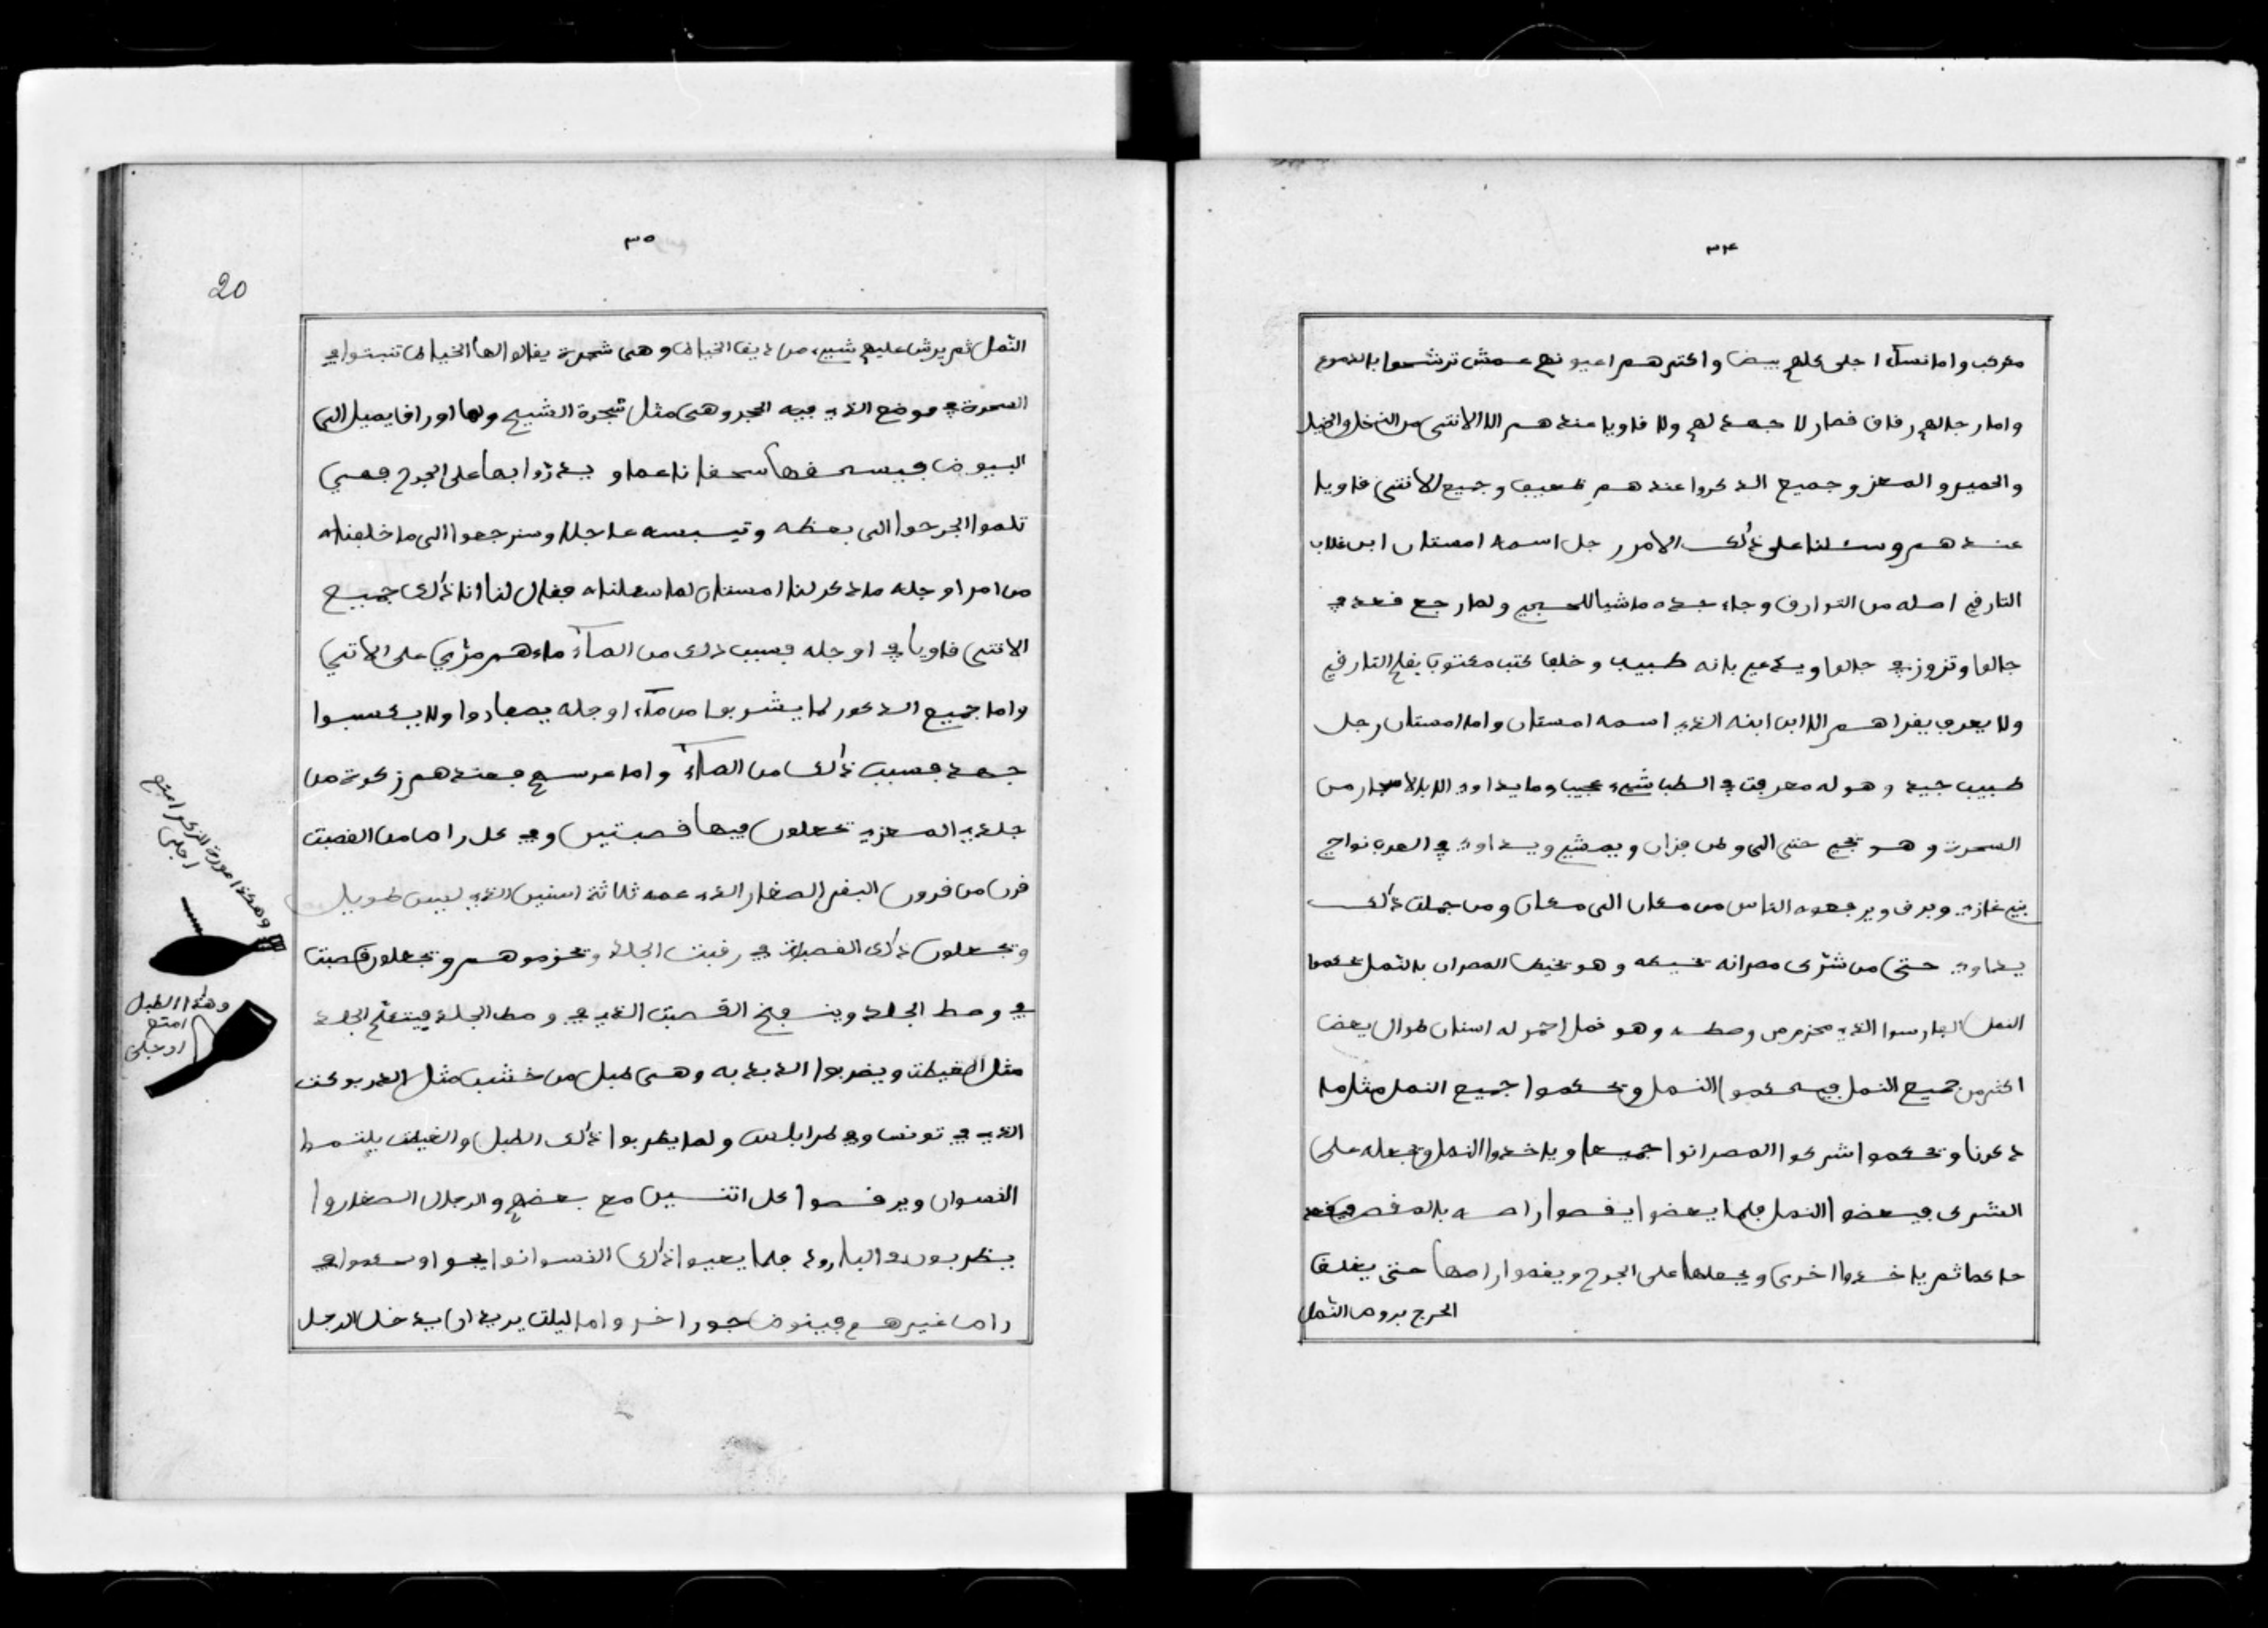 ٣٤
معركب واما نساء اجلى كلهم بيض واكثرهم اعيونهم عمش ترشحوا بالدموع
واما رجالهم رقاق قصار لا جهد لهم ولا قاويا عندهم الا الانثى من النخل والخيل
والحمير والمعز وجميع الذكروا عندهم ضعيف وجميع الانثى قاويا
عندهم وسئلنا على ذلك الامر رجل اسمه امستان ابن غلاب
التارقي اصله من التوارق وجاء جده ماشيا للحج ولما رجع قعد في
جالوا وتزوز في جالوا ويدعي بانه طبيب وخلف كتب مكتوب بقلم التارقي
ولا يعرف يقراهم الا ابن ابنه الذي اسمه امستان واما امستان رجل
طبيب جيد وهو له معرفت في الطب شيء عجيب وما يداوي الا بالاسجار من
السحرة وهو يجي حتى الى وطن فزان ويمشي ويداوي في العرب نواجي
بني غازي وبرق ويرفعوه الناس من مكان الى مكان ومن جملت ذلك
يداوي حتى من شرك مصرانه يخيطه وهو يخيط المصران بالنمل يحكموا
النمل الفارسوا الذي محزم من وصطه وهو نمل احمر له اسنان طوال يعض
اكثر من جميع النمل فيحكموا النمل ويحكموا جميع النمل مثل ما
ذكرنا ويحكموا شرك المصرانوا جميعا وياخذوا النمل ويجعله على
الشرك فيعضوا النمل فلما يعضوا يقصوا راصه بالمقص فيقعد
حاكما ثم ياخذوا اخرى ويجعلها على الجرح ويقصوا راصها حتى يغلق
الجرح بروص النمل
٣٥
20
النمل ثم يرش عليهم شيء من دقيق الخياطا وهي شجرة يقالوا لها الخياطا تنبتوا في
السحرة في موضع الذي فيه الحجر وهي مثل شجرة الشيح ولها اوراق يميل الى
البيوض فيسحقها سحقا ناعما ويدزوا بها على الجرح فهي
تلموا الجرحوا الى بعظه وتيبسه عاجلا وسنرجعوا الى ما خلفناه
من امر اوجله ما ذكر لنا امستان لما سعلناه فقال لنا انا ذلك جميع
الانثى قاويا في اوجله فسبب ذلك من الماء ماءهم مزي على الانثى
واما جميع الذكور لما يشربوا من ماء اوجله يصفاروا ولا يكسبوا
جهد فسبب ذلك من الماء واما عرسهم فعندهم زكرة من
جلد المعزي يجعلون فيها قصبتين وفي كل راص من القصبت
قرن من قرون البقر الصغار الذي عمه ثلاثة اسنين الذي ليس طويل
ويجعلون ذلك القصبات في رقبت الجلد ويحزموهم ويجعلون قصبت
في وصط الجلد وينفخ القصبت الذي في وصط الجلد فيتنفخ الجلد
مثل الغيطت ويضربوا الدبدبه وهي طبل من خشب مثل الدربوكت
الذي في تونس وفي طرابلس ولما يظربوا ذلك الطبل والغيطت يلتموا
النسوان ويرقصوا كل اثنين مع بعضهم والرجال الصغاروا
يظربون في البارود فلما يعيوا ذلك النسوانوا يجوا ويتكموا في
راص غيرهم فينوض جور اخر واما ليلت يريد ان يدخل الرجل
وهكذا صورة الزكرا امتع
اجلى
وهذا الطبل
امتع
اوجلى